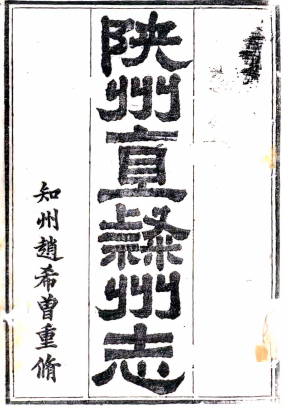 陝州直隸州志
知州趙希曾重脩